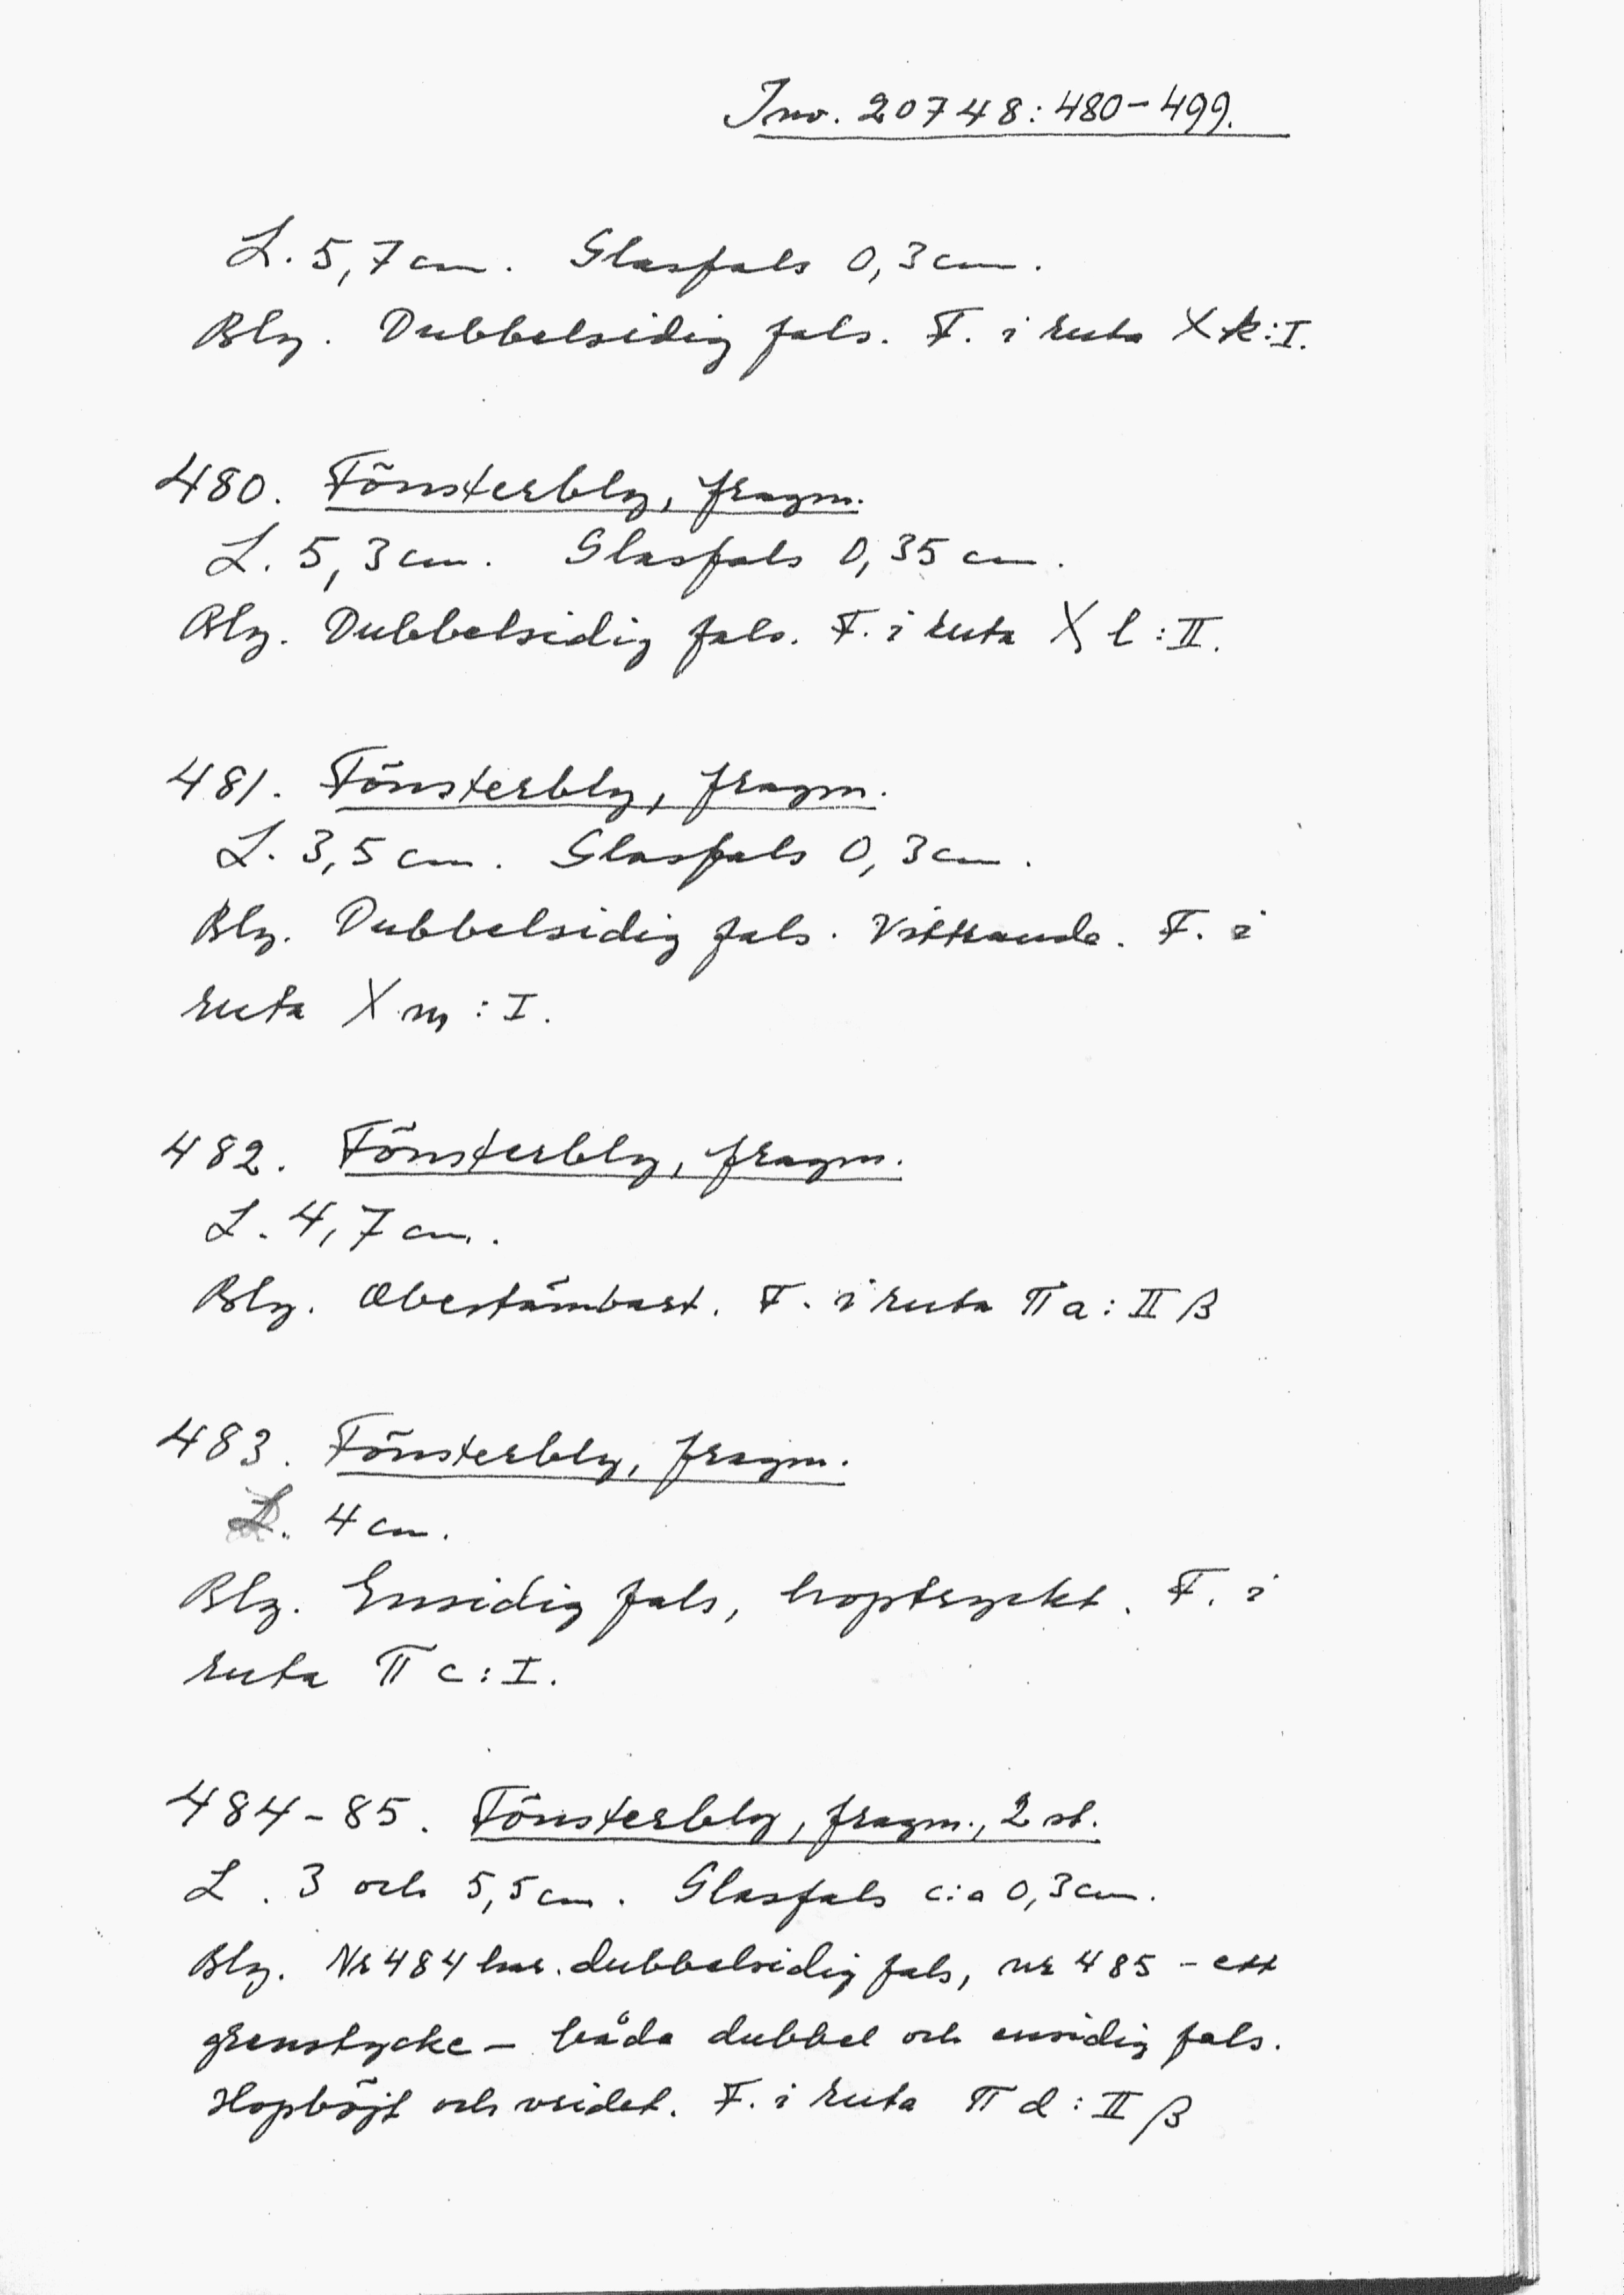 Inv. 20748:480-499.
L. 5,7 cm. Glasfals 0,3 cm.
Bly. Dubbelsidig fals. F. i ruta X k:I.
480. Fönsterbly, fragm.
L. 5,3 cm. Glasfals 0,35 cm.
Bly. Dubbelsidig fals. F. i ruta X l:II.
481. Fönsterbly, fragm.
L. 3,5 cm. Glasfals 0,3 cm.
Bly. Dubbelsidig fals. Vittrande. F. i
ruta X m:I.
482. Fönsterbly, fragm.
L. 4,7 cm.
Bly. Obestämbart. F. i ruta π a:II β
483. Fönsterbly, fragm.
L. 4 cm.
Bly. Ensidig fals, hoptryckt. F. i
ruta π c:I.
484-85. Fönsterbly, fragm., 2 st.
L. 3 och 5,5 cm. Glasfals c:a 0,3 cm.
Bly. Nr 484 har dubbelsidig fals, nr 485 - ett
grenstycke - båda dubbel och ensidig fals.
Hopböjt och vridet. F. i ruta π d:II β